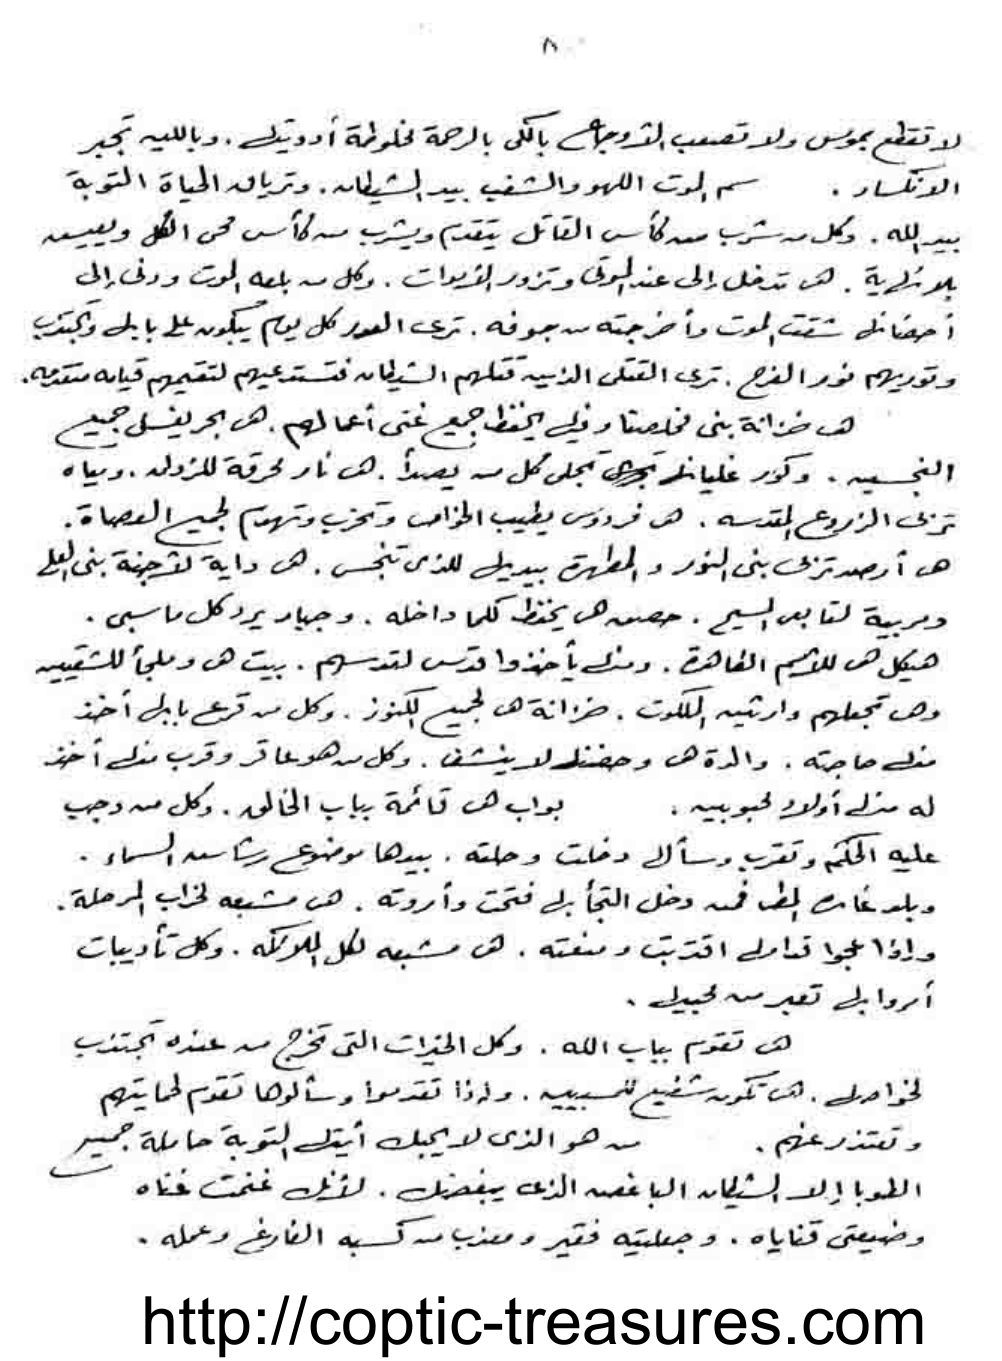 ٨
لا تقطع بموس ولا تصعب الأوجاع بالكى بالرحمة مخلوطة أدويتك . وباللين تجبر
الانكسار . سم الموت اللهو والشغب بيد الشيطان . وترياق الحياة التوبة
بيد الله . وكل من شرب من كأس القاتل يتقدم ويشرب من كأس محى الكل ويعيش
بلا نهاية . هى تدخل إلى عند الموتى وتزور الأموات . وكل من بلعه الموت ودنى إلى
أحضانها شقت الموت وأخرجته من جوفه . ترى العور كل يوم يبكون على بابها وتجتذب
وتوريهم نور الفرح . ترى القتلى الذين قتلهم الشيطان فتستدعيهم لتقيمهم قيامه متقدمه .
هى خزانة بنى مخلصنا وفيها يحفظ جميع غنى أعمالهم . هى بحر يغسل جميع
النجسين . وكور غليانها تجلى كل من يصدأ . هى نار محرقة للزوان . ومياه
تربى الزروع المقدسه . هى فردوس يطيب الخواص وتخرب وتهدم لجميع العصاة .
هى أرض تربى بنى النور والمطهرة بيديها للذى تنجس . هى داية لأجنة بنى العلى
ومربية لتابعى المسيح . حصن هى يحفظ كلما داخله . وجبار يرد كل ما سبى .
هيكل هى للأمم الطاهرة . ومنها يأخذوا قدس لقدسهم . بيت هى وملجأ للشقيين
وهى تجعلهم وارثين الملكوت . خزانة هى لجميع الكنوز . وكل من قرع بابها أخذ
منها حاجته . والدة هى وحضنها لا ينشف . وكل من هو عاقر وقرب منها أخذ
له منها أولاد محبوبين . بواب هى قائمة بباب الخالق . وكل من وجب
عليه الحكم وتقرب وسألها دخلت وحلته . بيدها موضوع رشاش السماء .
وبلا غامة المطر فمن دخل التجأ بها فتحت وأروته . هى مشبعه لخراب المرحلة .
وإذا عجوا قدامها اقتربت ومنعته . هى مشبهه لكل الملائكه . وكل تأديبات
أمروا بها تعبر من محبيها .
هى تقوم بباب الله . وكل الخيرات التى تخرج من عنده تجتذب
لخواصها . هى تكون شفيع للمسبيين . وإذا تقدموا وسألوها تقوم لحمايتهم
وتعتذر عنهم . من هو الذى لا يحبك أيتها التوبة حاملة جميع
الطوبا إلا الشيطان الباغض الذى يبغضك . لأنك غنمت غناه
وضيعتى قناياه . وجعلتيه فقير ومعذب من كسبه الفارغ وعمله .
http://coptic-treasures.com